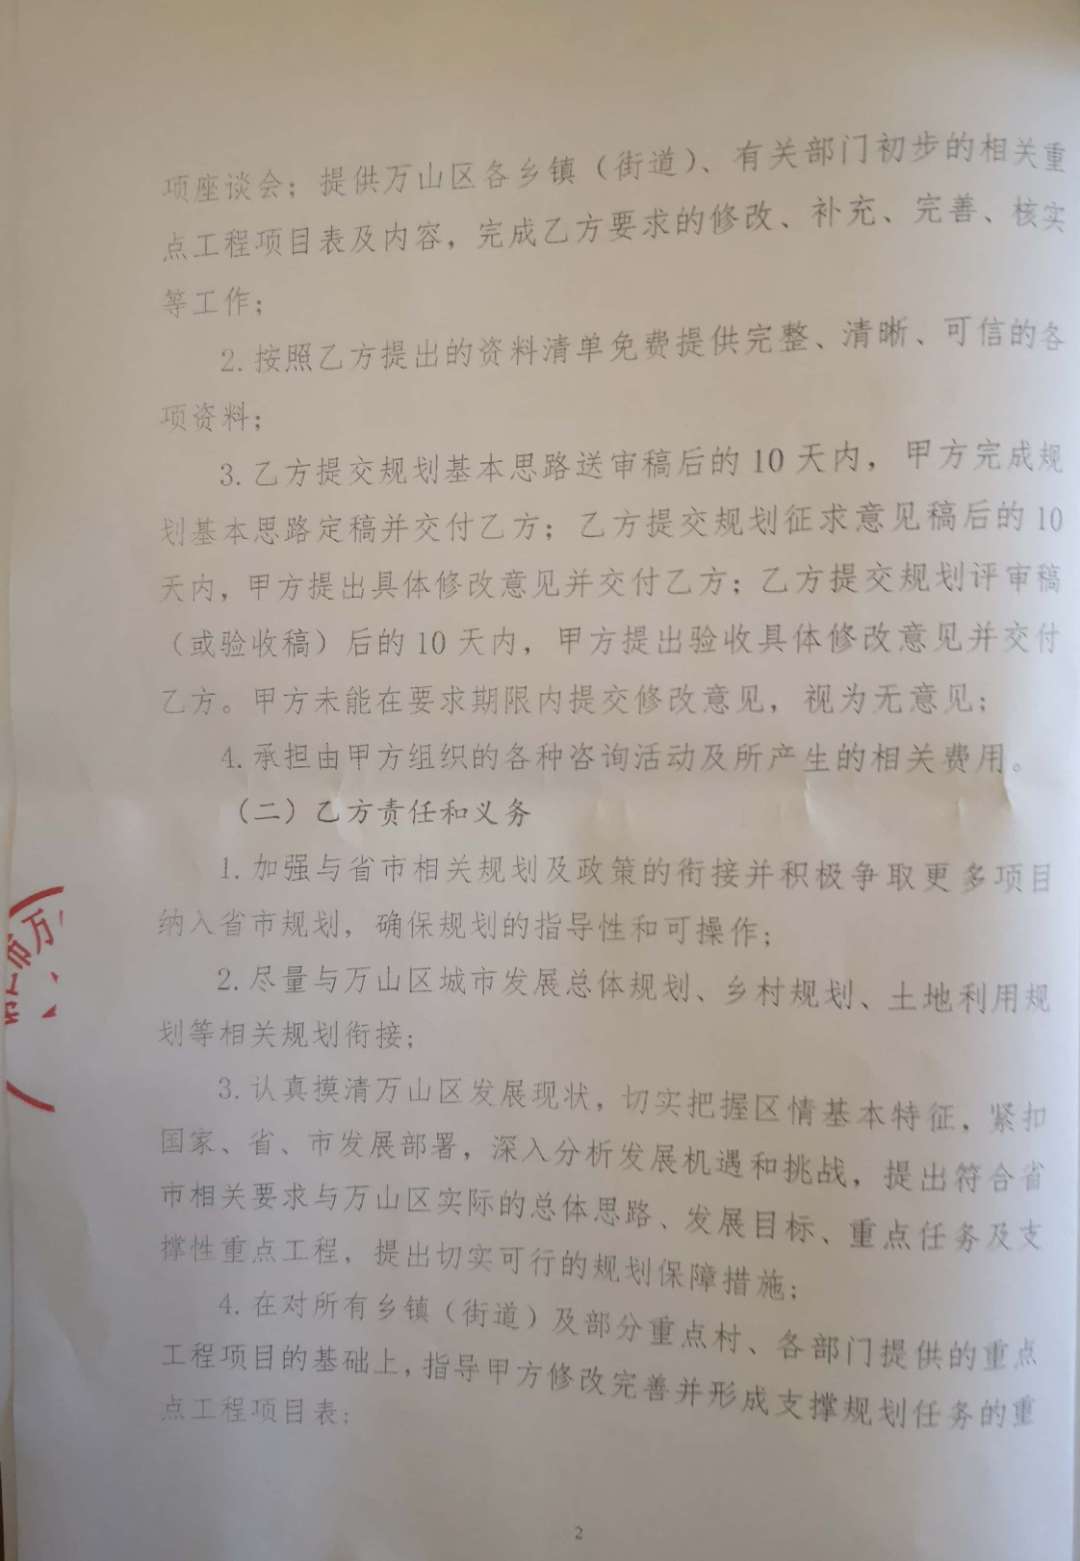 项座谈会；提供万山区各乡镇（街道）、有关部门初步的相关重
点工程项目表及内容，完成乙方要求的修改、补充、完善、核实
等工作；
2.按照乙方提出的资料清单免费提供完整、清晰、可信的各
项资料；
3.乙方提交规划基本思路送审稿后的 10 天内，甲方完成规
划基本思路定稿并交付乙方；乙方提交规划征求意见稿后的 10
天内，甲方提出具体修改意见并交付乙方；乙方提交规划评审稿
（或验收稿）后的 10 天内，甲方提出验收具体修改意见并交付
乙方。甲方未能在要求期限内提交修改意见，视为无意见；
4.承担由甲方组织的各种咨询活动及所产生的相关费用。
（二）乙方责任和义务
1.加强与省市相关规划及政策的衔接并积极争取更多项目
纳入省市规划，确保规划的指导性和可操作；
2.尽量与万山区城市发展总体规划、乡村规划、土地利用规
划等相关规划衔接；
3.认真摸清万山区发展现状，切实把握区情基本特征，紧扣
国家、省、市发展部署，深入分析发展机遇和挑战，提出符合省
市相关要求与万山区实际的总体思路、发展目标、重点任务及支
撑性重点工程，提出切实可行的规划保障措施；
4.在对所有乡镇（街道）及部分重点村、各部门提供的重点
工程项目的基础上，指导甲方修改完善并形成支撑规划任务的重
点工程项目表；
市万
2